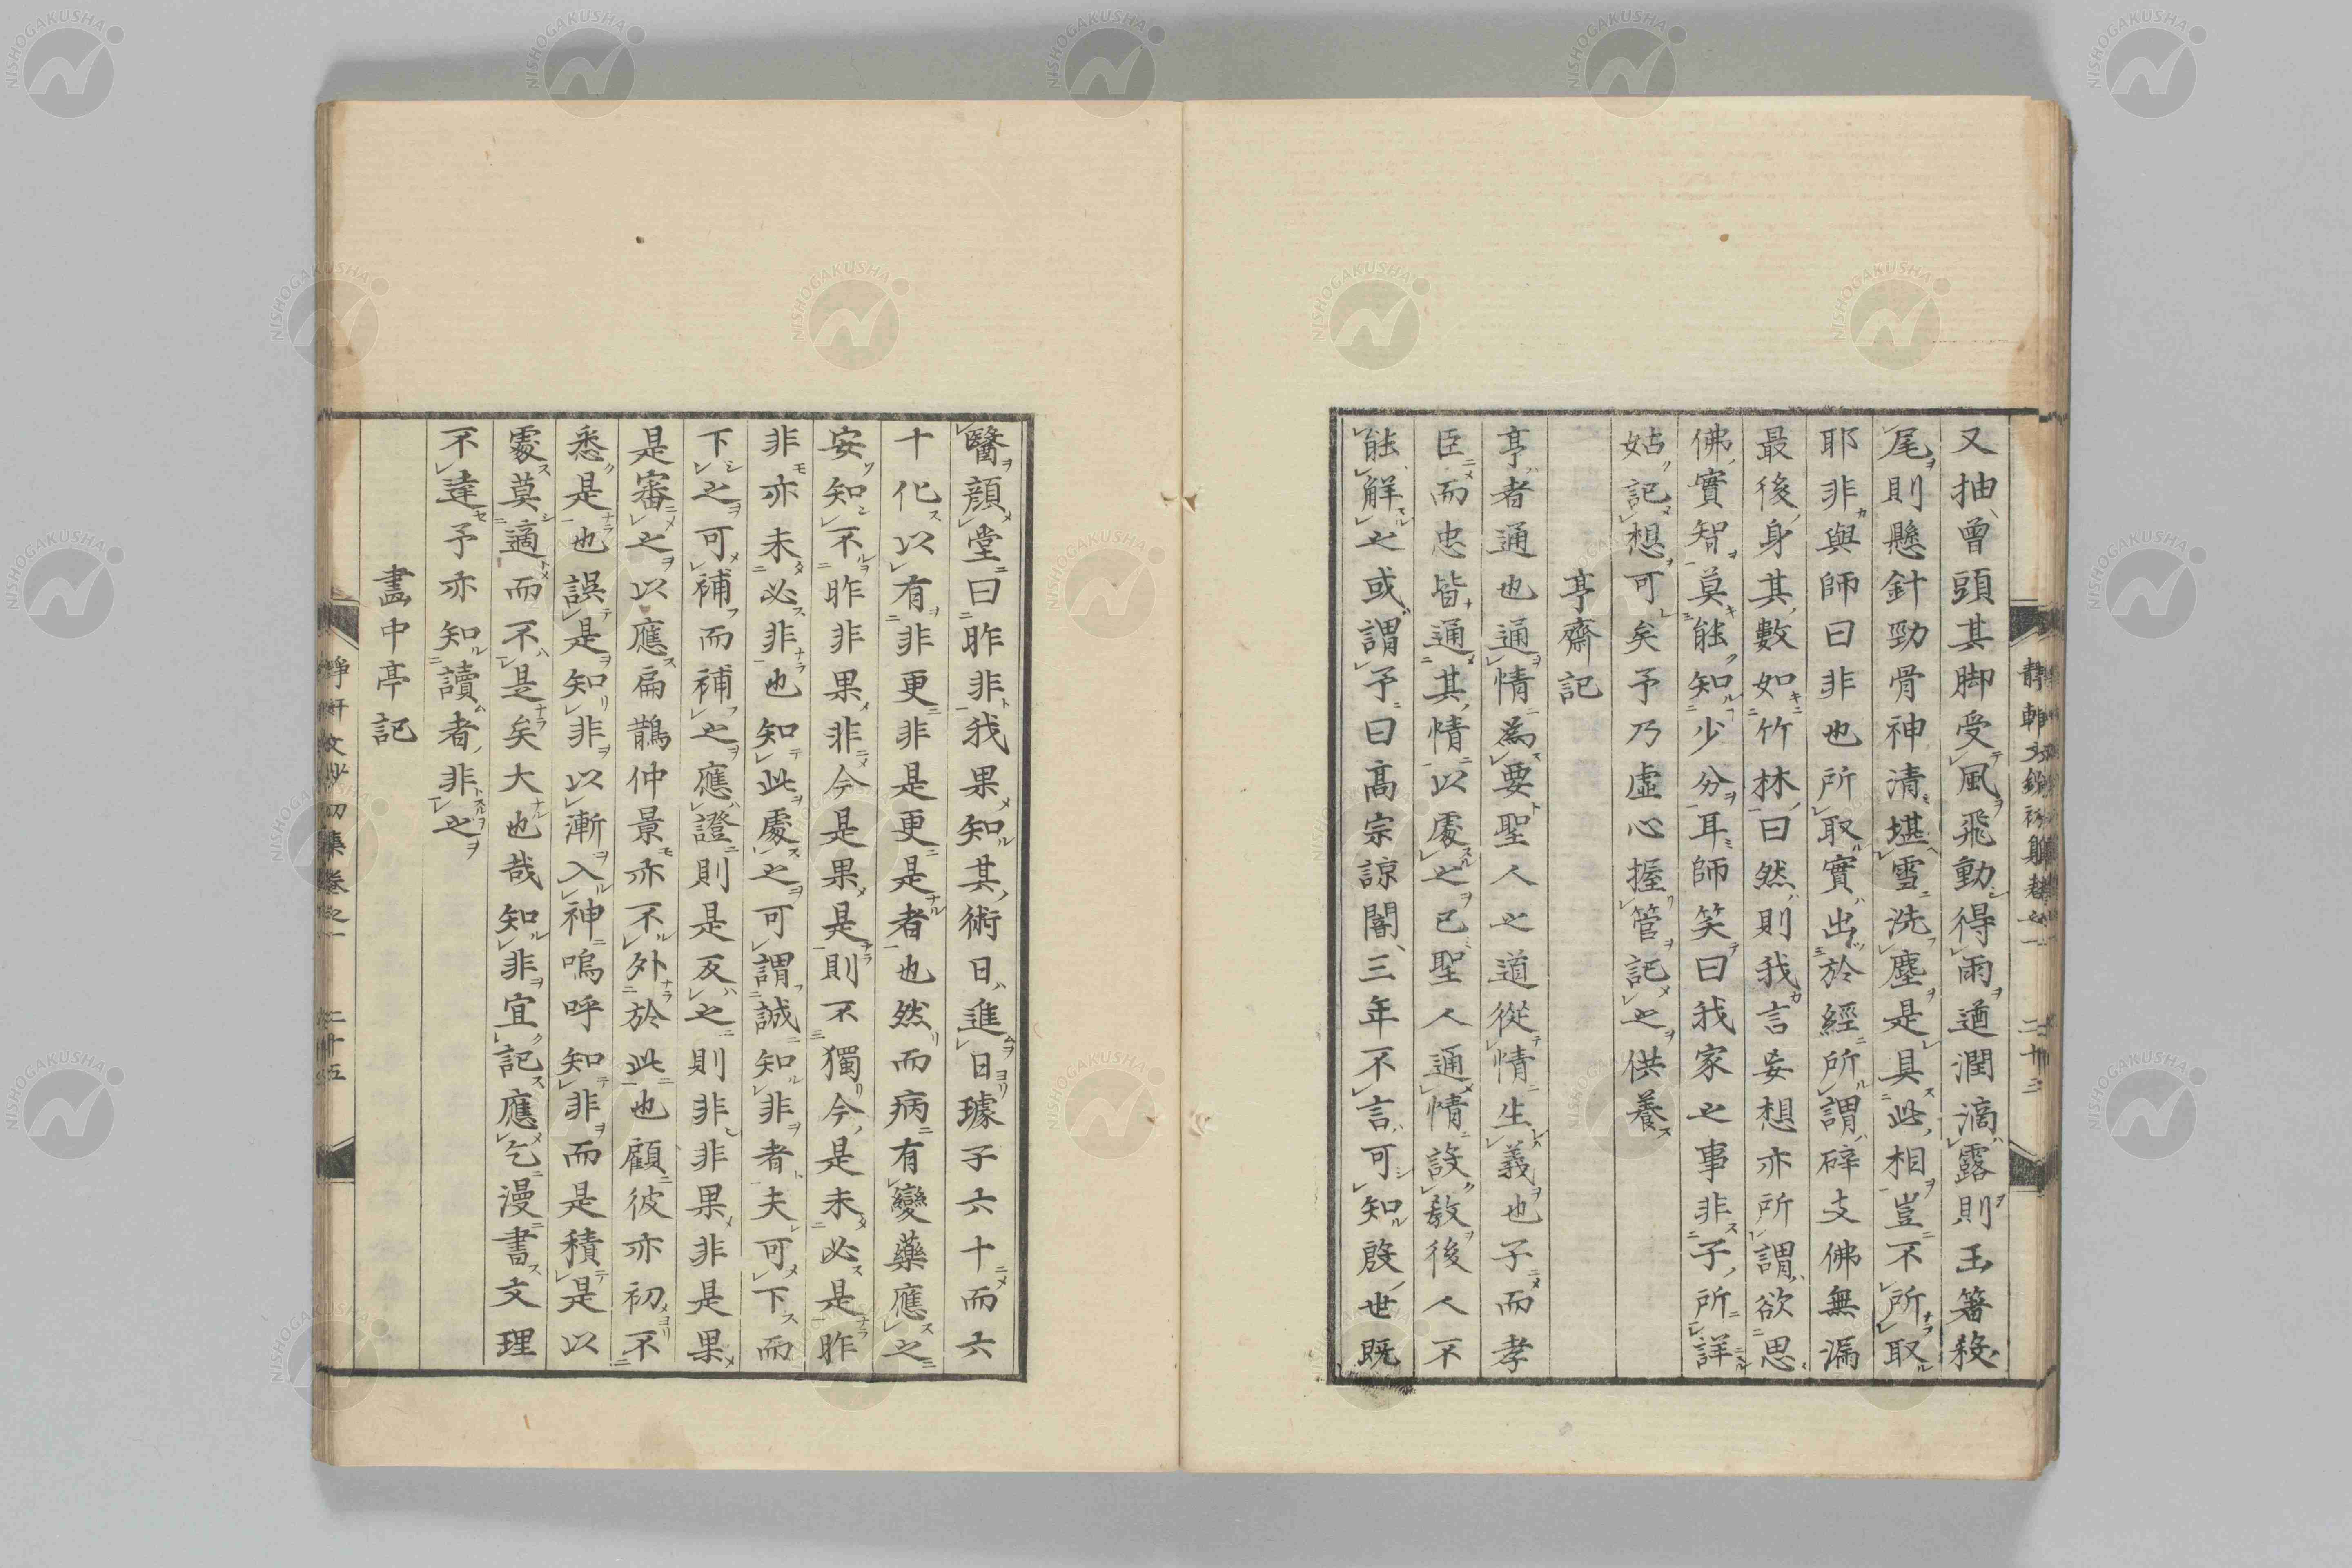 又抽曾頭其脚受風飛動得雨遒潤滴露則玉箸殺
尾則懸針勁骨神清堪雪洗塵是具此相豈不所取
耶非與師曰非也所取實出於經所謂碎支佛無漏
最後身其數如竹林曰然則我言妄想亦所謂欲思
佛實智莫能知少分耳師笑曰我家之事非子所詳
姑記想可矣予乃虛心握管記之供養
亭齋記
亭者通也通情為要聖人之道從情生義也子而孝
臣而忠皆通其情以處之已聖人通情設教後人不
能解之或謂予曰高宗諒闇三年不言可知殷世既
醫顏堂曰昨非我果知其術日進日璩子六十而六
十化以有非更非是更是者也然而病有變藥應之
安知不昨非果非今是果是則不獨今是未必是昨
非亦未必非也知此處之可謂誠知非者夫可下而
下之可補而補之應證則是反之則非非果非是果
是審之以應扁鵲仲景亦不外於此也顧彼亦初不
悉是也誤是知非以漸入神嗚呼知非而是積是以
處莫適而不是矣大也哉知非宜記應乞漫書文理
不達予亦知讀者非之
畫中亭記
二十五